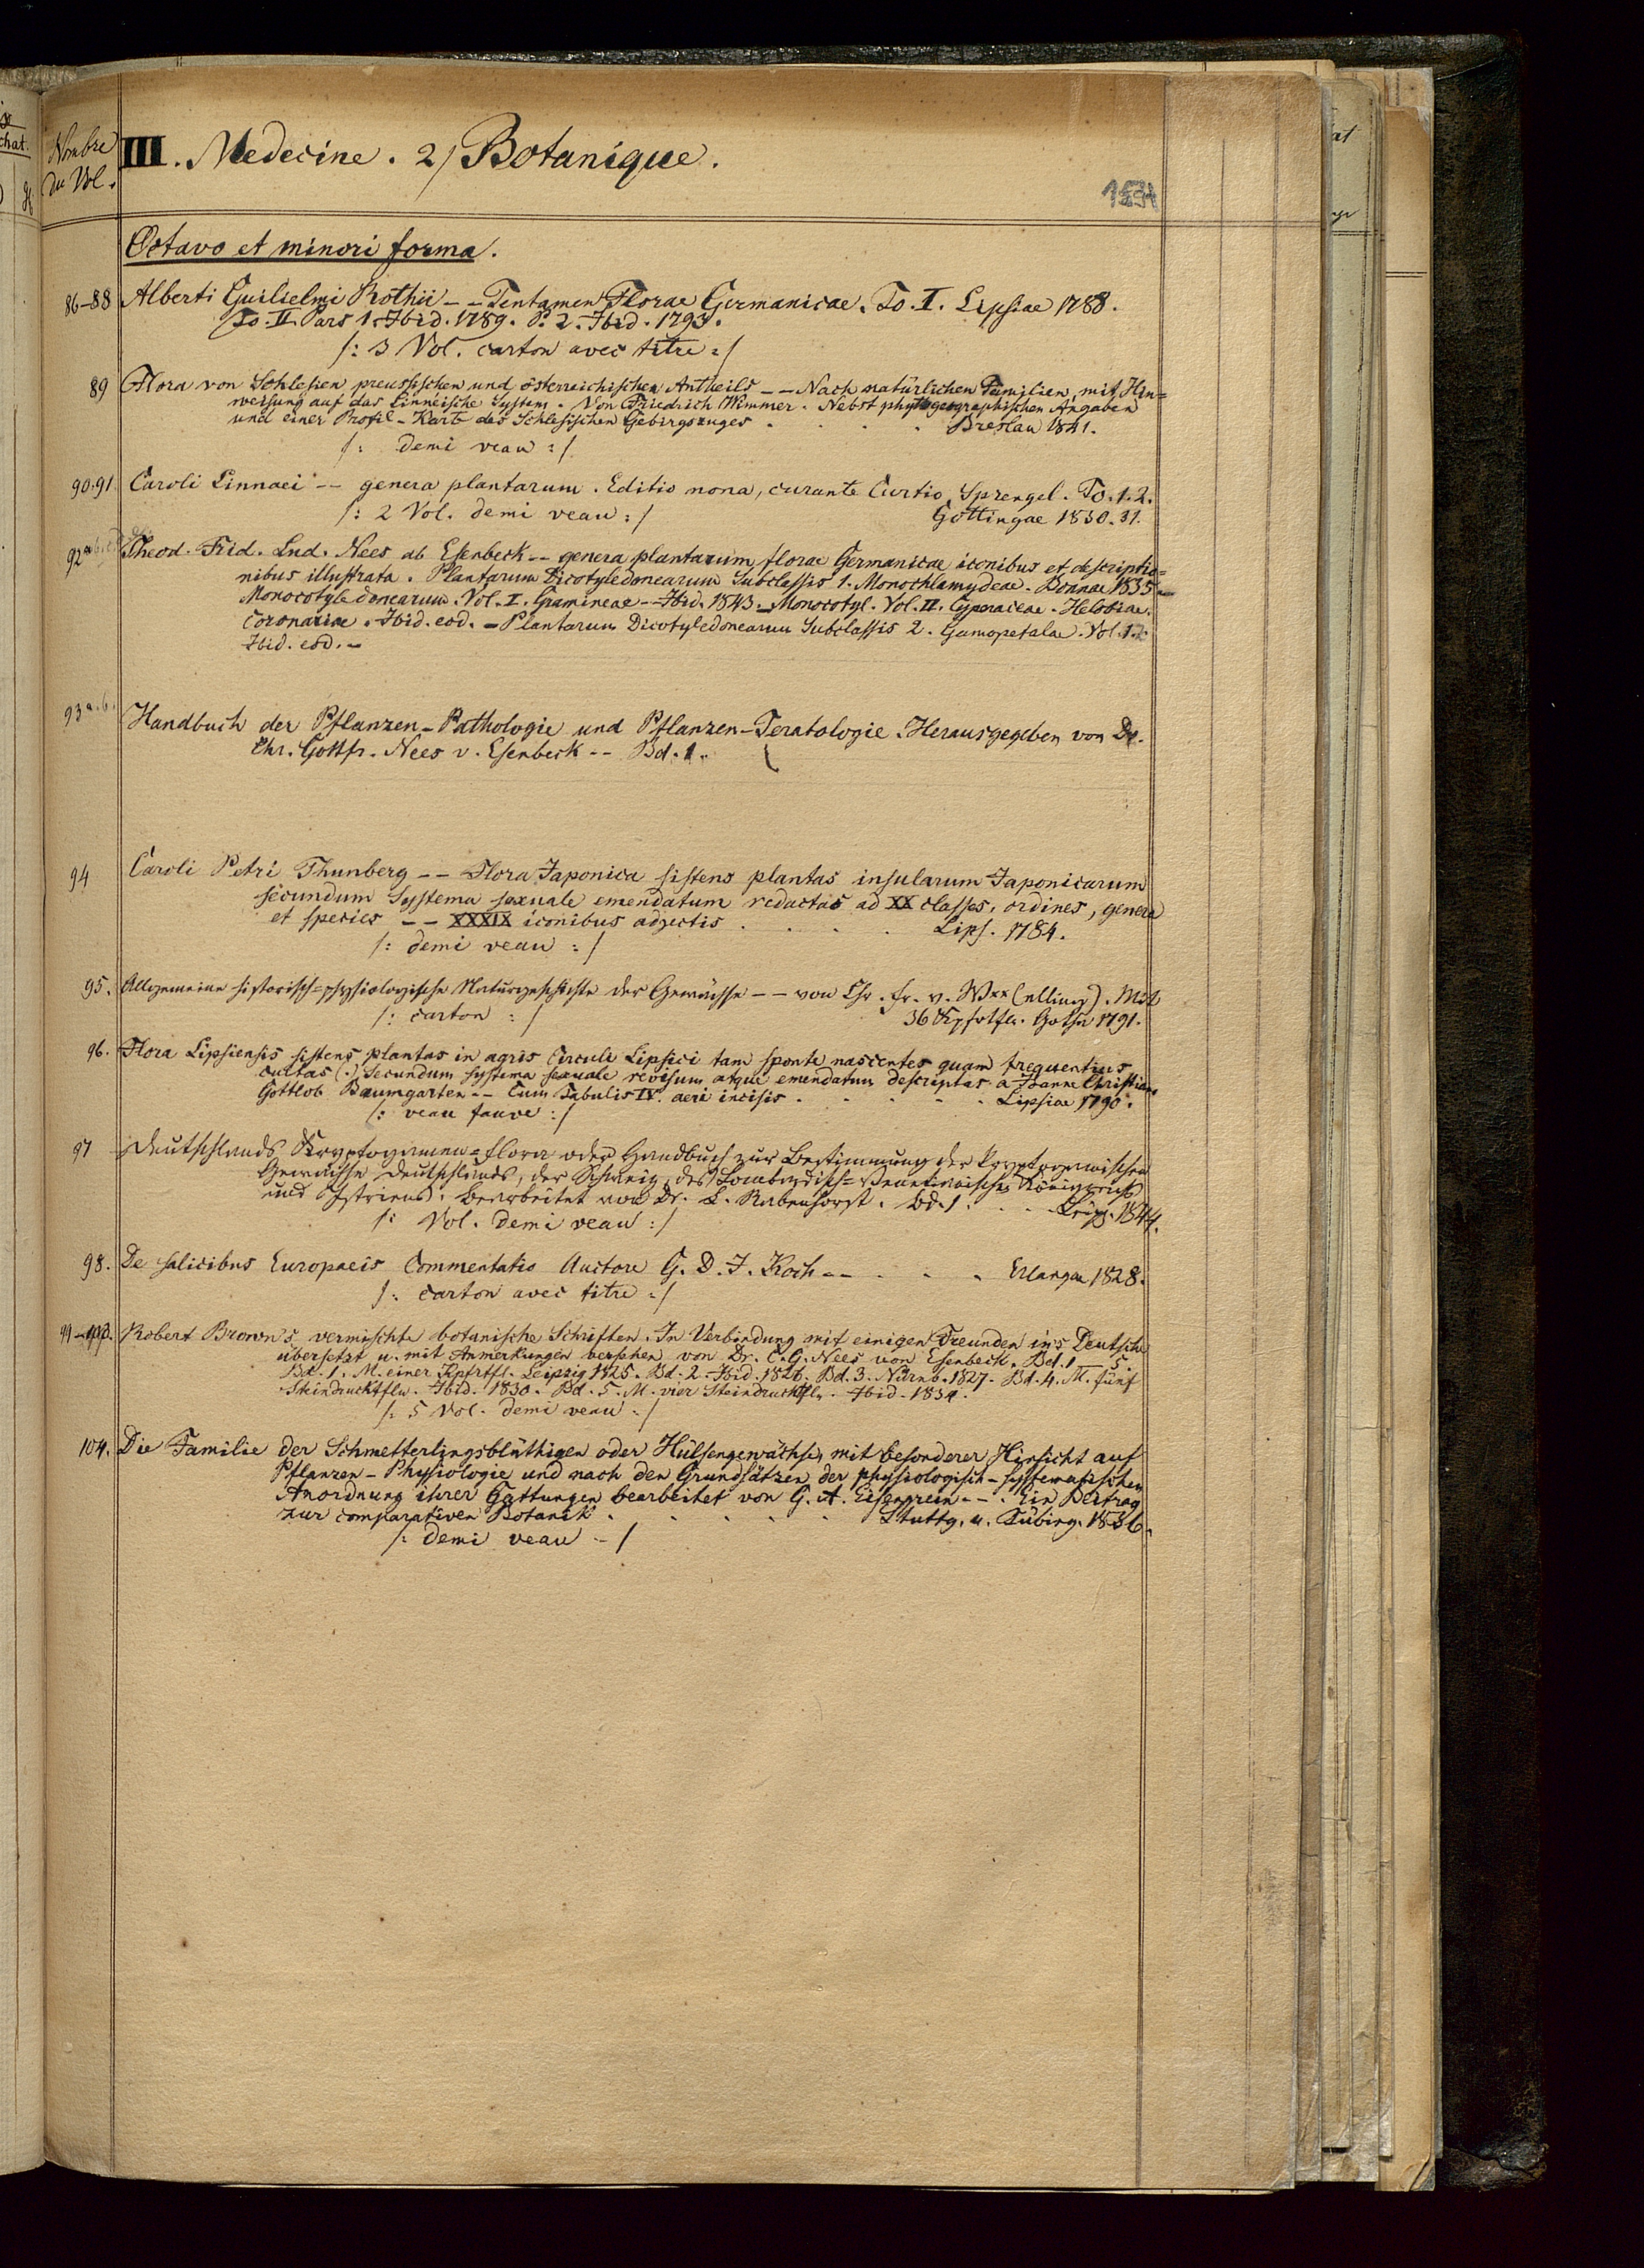 Nombre
du Vol.
III. Medecine. 2/ Botanique.
Octavo et minori forma.
86–88 Alberti Guilielmi Rothii -- Tentamen Florae Germanicae. To. I. Lipsiae 1788.
To. II. Pars 1. Ibid. 1789. P. 2. Ibid. 1793.
/: 3 Vol. carton avec titre :/
89 Flora von Schlesien preussischen und österreichischen Antheils -- Nach natürlichen Familien, mit Hin=
weisung auf das Linneische System. Von Friedrich Wimmer. Nebst phytogeographischen Angaben
und einer Profil-Karte des Schlesischen Gebirgszuges . . . . Breslau 1841.
/: demi veau :/
90.91. Caroli Linnaei -- genera plantarum. Editio nona, curante Curtio Sprengel. To. 1. 2.
/: 2 Vol. demi veau :/ Gottingae 1830. 31.
92 Theod. Frid. Lud. Nees ab Esenbeck -- genera plantarum florae Germanicae iconibus et descriptio=
nibus illustrata. Plantarum Dicotyledonearum Subclassis 1. Monochlamydeae. Bonnae 1835 –
Monocotyledonearum. Vol. I. Gramineae -- Ibid. 1843. – Monocotyl. Vol. II. Cyperaceae. Helobiae.
Coronariae. Ibid. eod. – Plantarum Dicotyledonearum Subclassis 2. Gamopetalae. Vol. 1. 2.
Ibid. eod. –
93 a.b. Handbuch der Pflanzen-Pathologie und Pflanzen-Teratologie. Herausgegeben von Dr.
Chr. Gottfr. Nees v. Esenbeck -- Bd. 1.
94 Caroli Petri Thunberg -- Flora Japonica sistens plantas insularum Japonicarum
secundum Systema sexuale emendatum redactas ad XX classes, ordines, genera
et species -- XXXIX iconibus adjectis . . . . Lips. 1784.
/: demi veau :/
95. Allgemeine historisch=physiologische Naturgeschichte der Gewächse -- von Chr. Fr. v. W** (elling). Mit
/: carton :/ 36 Kpfrtfln. Gotha 1791.
96. Flora Lipsiensis sistens plantas in agris Circuli Lipsici tam sponte nascentes quam frequentius
cultas (.) Secundum systema sexuale revisum atque emendatum descriptas a Joanne Christian.
Gottlob Baumgarten -- Cum Tabulis IV aeri incisis . . . . . Lipsiae 1790.
/: veau fauve :/
97 Deutschlands Kryptogamen=Flora oder Handbuch zur Bestimmung der kryptogamischen
Gewächse Deutschlands, der Schweiz, des Lombardisch=Venetianischen Königreichs
und Istriens. Bearbeitet von Dr. L. Rabenhorst. Bd. 1. . . . Leipz. 1844.
/: Vol. demi veau :/
98. De salicibus Europaeis Commentatio Auctore G. D. J. Koch -- . . . Erlangae 1828.
/: carton avec titre :/
99–103. Robert Brown's vermischte botanische Schriften. In Verbindung mit einigen Freunden ins Deutsche
übersetzt u. mit Anmerkungen versehen von Dr. C. G. Nees von Esenbeck. Bd. 1 – 5.
Bd. 1. M. einer Kpfrtfl. Leipzig 1825. Bd. 2. Ibid. 1826. Bd. 3. Nürnb. 1827. Bd. 4. M. fünf
Steindrucktfln. Ibid. 1830. Bd. 5. M. vier Steindrucktfln. Ibid. 1834.
/: 5 Vol. demi veau :/
104. Die Familie der Schmetterlingsblüthigen oder Hülsengewächse, mit besonderer Hinsicht auf
Pflanzen-Physiologie und nach den Grundsätzen der physiologisch-systematischen
Anordnung ihrer Gattungen bearbeitet von G. A. Eisengrein --. Ein Beitrag
zur comparativen Botanik . . . . . Stuttg. u. Tübing. 1836.
/: demi veau :/